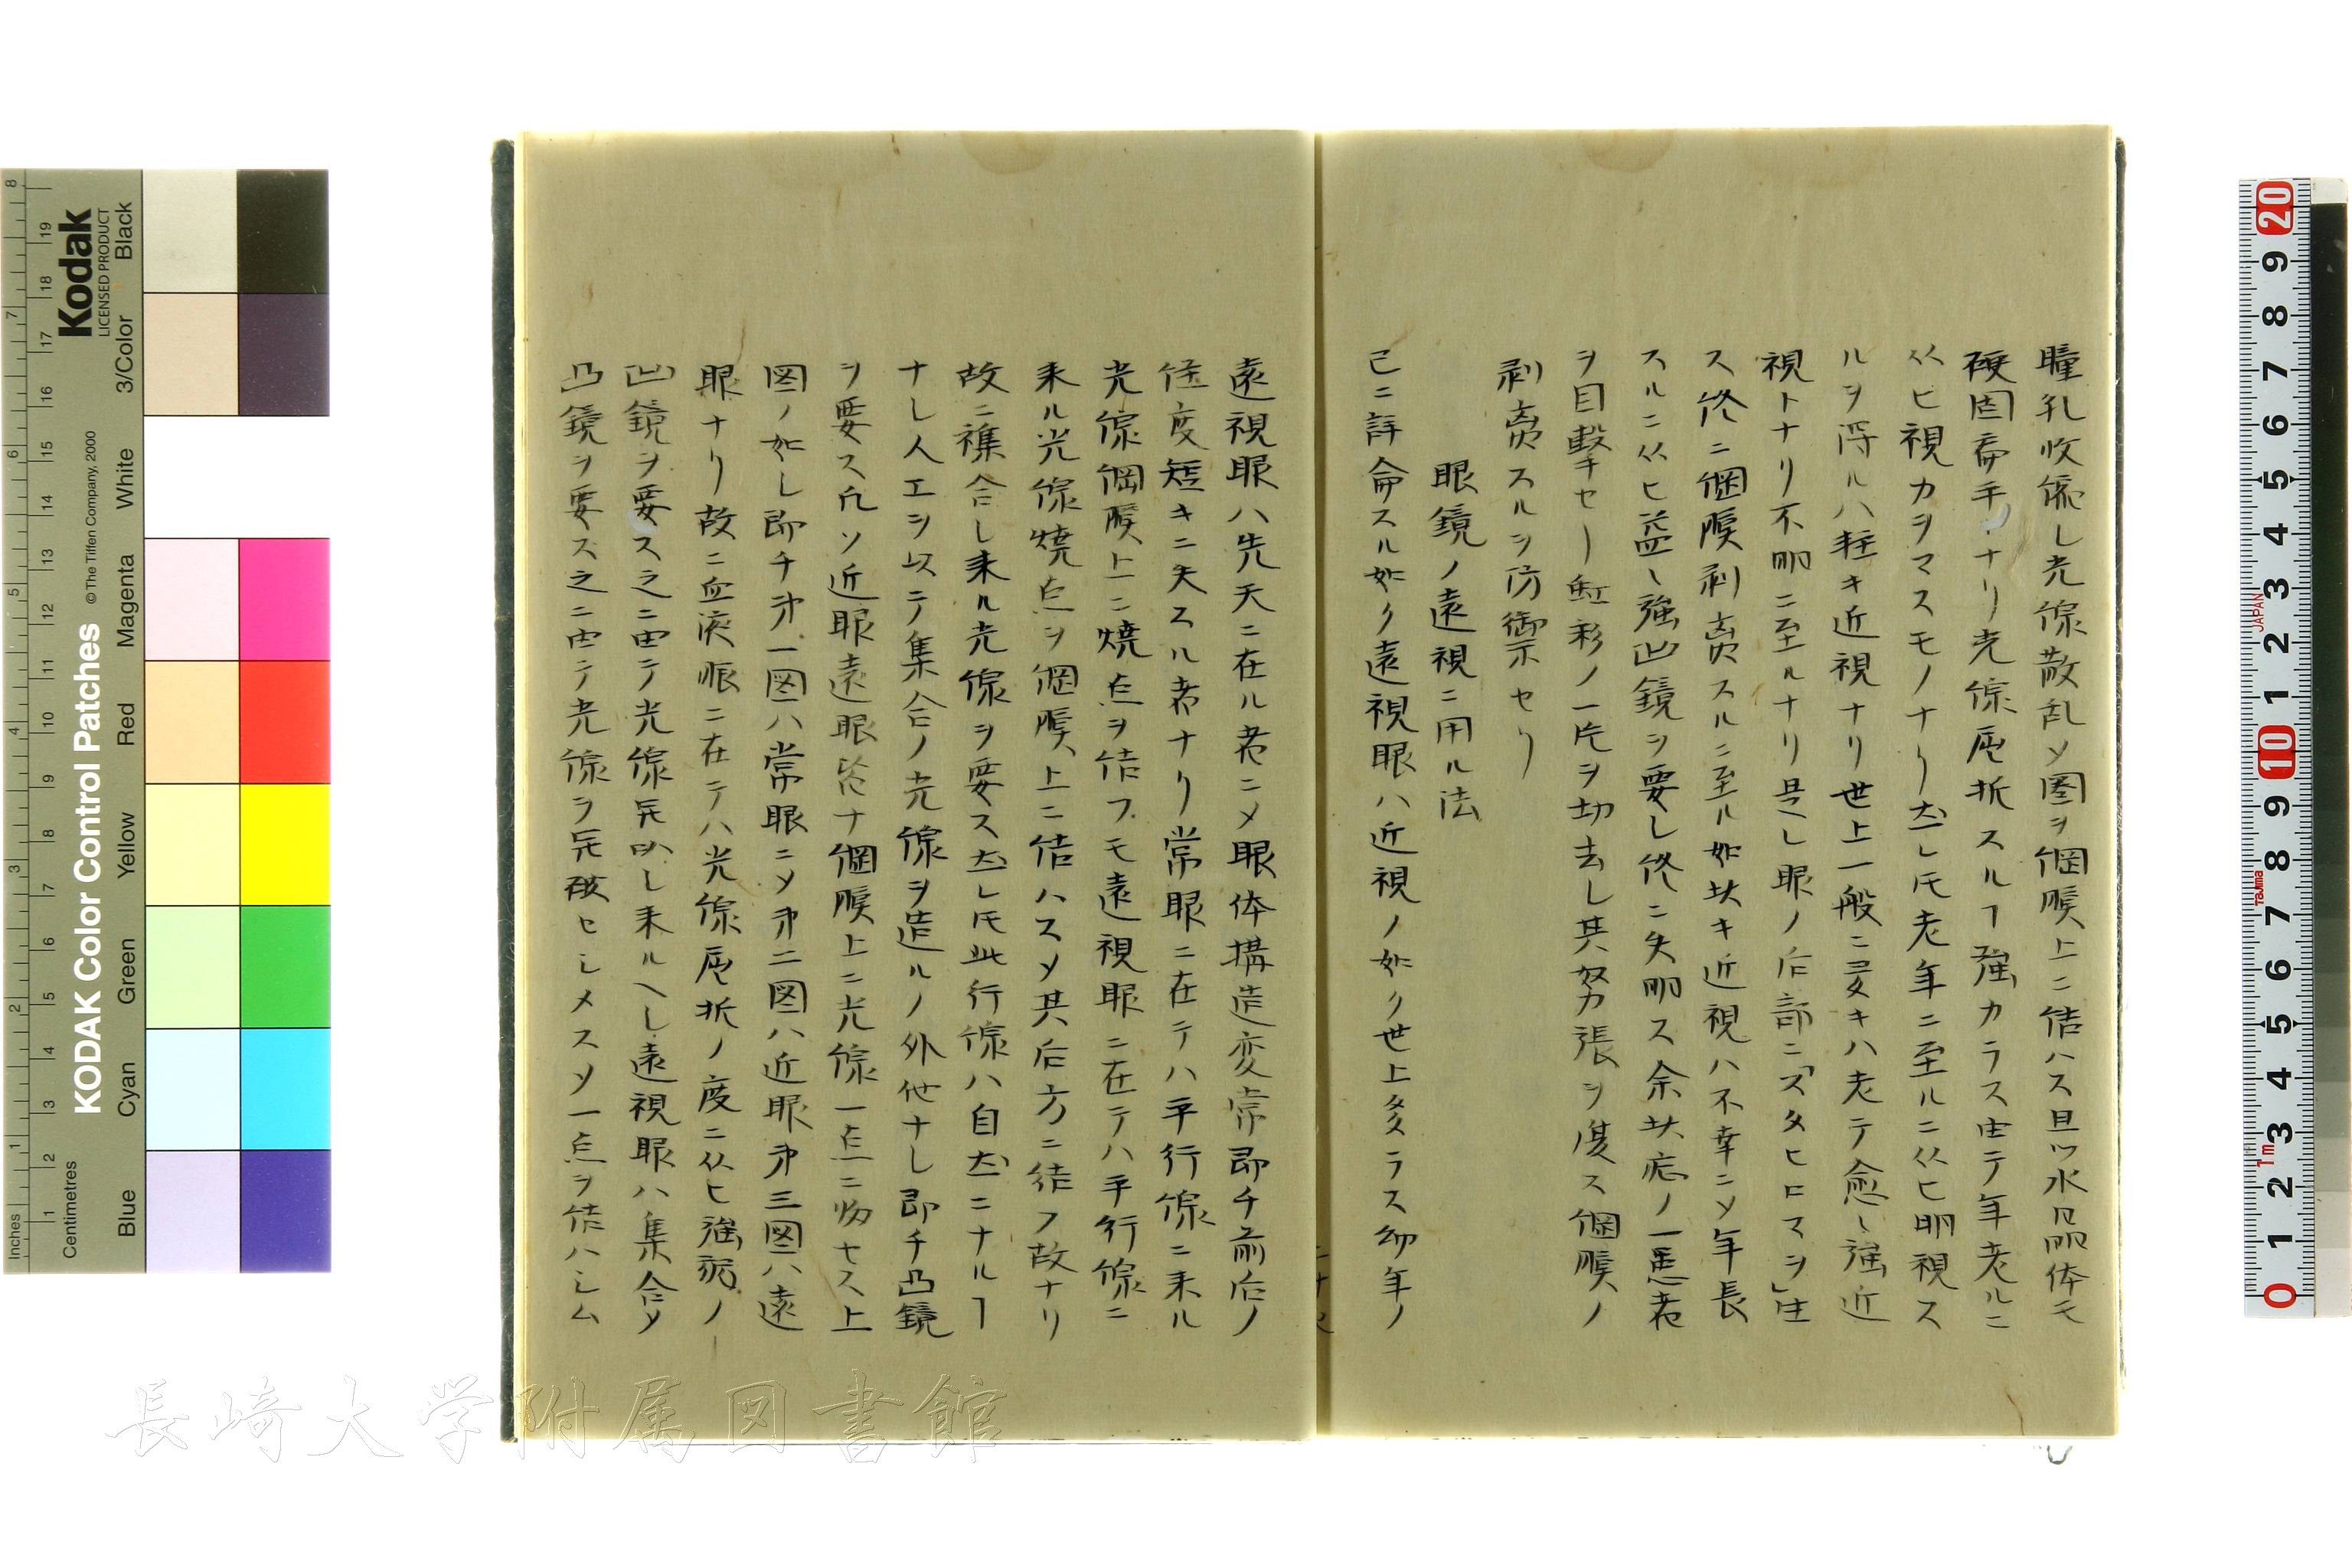 瞳孔收縮し光線散乱メ圏ヲ網膜上ニ結ハス且ツ水晶体モ
硬固扁平ナリ光線屈折スルヿ強カラス由テ年老ルニ
从ヒ視力ヲマスモノナリ然レ𪜈老年ニ至ルニ从ヒ明視ス
ルヲ得ルハ軽キ近視ナリ世上一般ニ受キハ老テ愈〻強近
視トナリ不明ニ至ルナリ是レ眼ノ后部ニ「スタヒロマヲ」生
ス終ニ網膜剥賁スルニ至ル如此キ近視ハ不幸ニメ年長
スルニ从ヒ益〻強凹鏡ヲ要し終ニ失明ス余此症ノ一患者
ヲ目撃セリ虹彩ノ一片ヲ切去し其努力張ヲ復ス網膜ノ
剥賁スルヲ防禦セリ
眼鏡ノ遠視ニ用ル法
已ニ詳侖スル如ク遠視眼ハ近視ノ如ク世上多ラス幼年ノ
遠視眼ハ先天ニ在ル者ニメ眼体構造変常即チ前后ノ
径度短キニ失スル者ナリ常眼ニ在テハ平行線ニ来ル
光線網膜上ニ焼点ヲ結フモ遠視眼ニ在テハ平行線ニ
来ル光線焼点ヲ網膜上ニ結ハスメ其后方ニ結フ故ナリ
故ニ襍合し来ル光線ヲ要ス然レ𪜈此行線ハ自然ニナルヿ
ナし人工ヲ以テ集合ノ光線ヲ造ルノ外他ナし即チ凸鏡
ヲ要ス凡ソ近眼遠眼皆ナ網膜上ニ光線一点ニ湊セス上
図ノ如し即チ𭕄一図ハ常眼ニメ𭕄二図ハ近眼𭕄三図ハ遠
眼ナリ故ニ血液眼ニ在テハ光線屈折ノ度ニ从ヒ強弱ノ
凹鏡ヲ要ス之ニ由テ光線開し来ルヘし遠視眼ハ集合メ
凸鏡ヲ要ス之ニ由テ光線ヲ開破セシメスメ一点ヲ結ハシム
Kodak
LICENSED PRODUCT
KODAK Color Control Patches
© The Tiffen Company, 2000
Inches
Centimetres
Blue
Cyan
Green
Yellow
Red
Magenta
White
3/Color
Black
JAPAN
Tajima
1m
長崎大学附属図書館